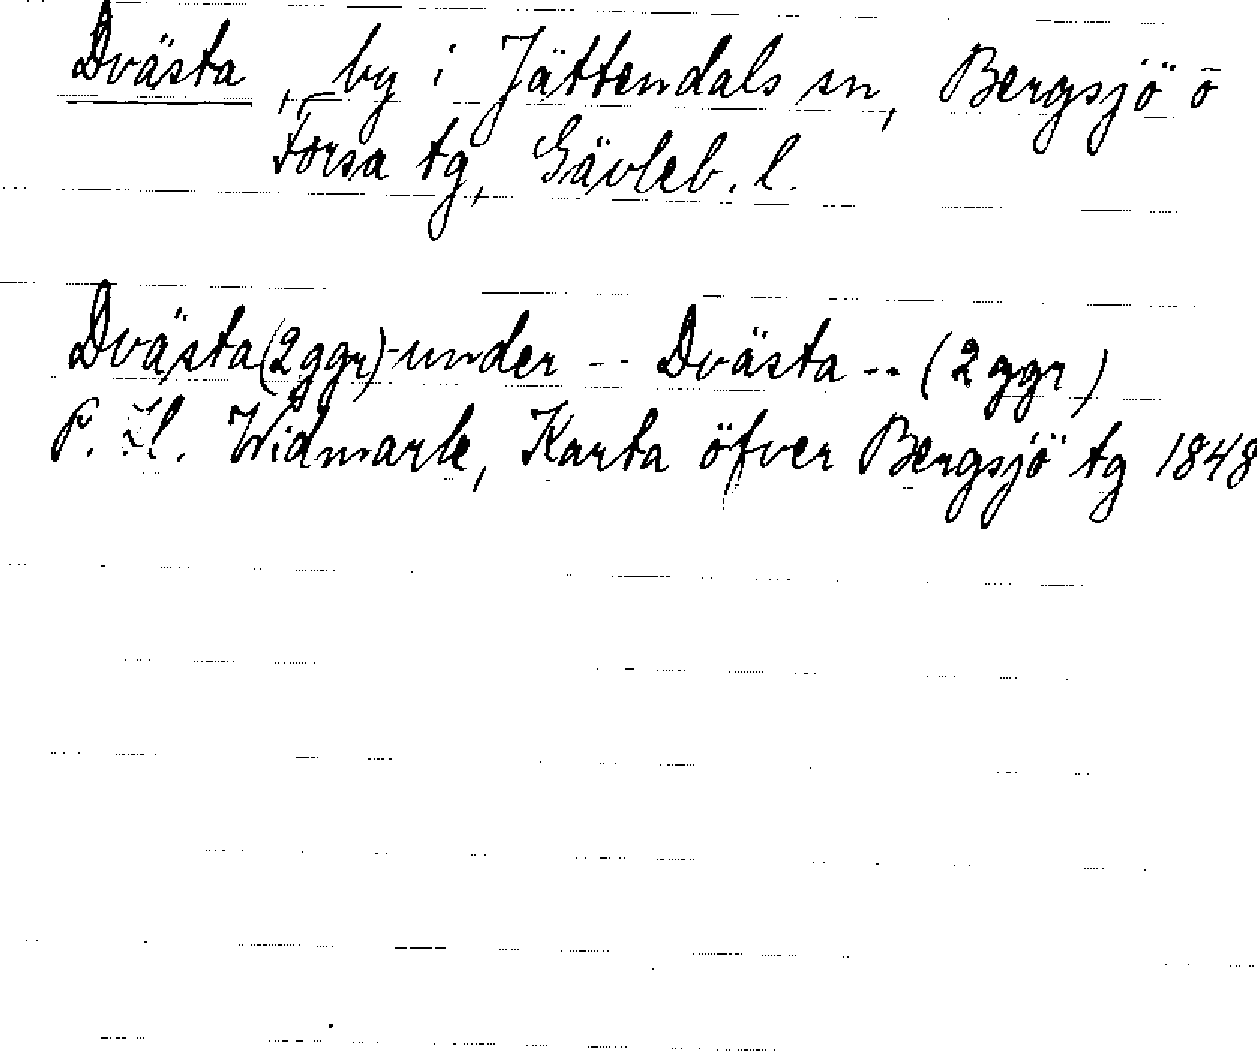 Dvästa, by i Jättendals sn, Bergsjö o
Forsa tg, Gävleb. l.
Dvästa (2 ggr) - under -- Dvästa -- (2 ggr)
P. H. Widmark, Karta öfver Bergsjö tg 1848